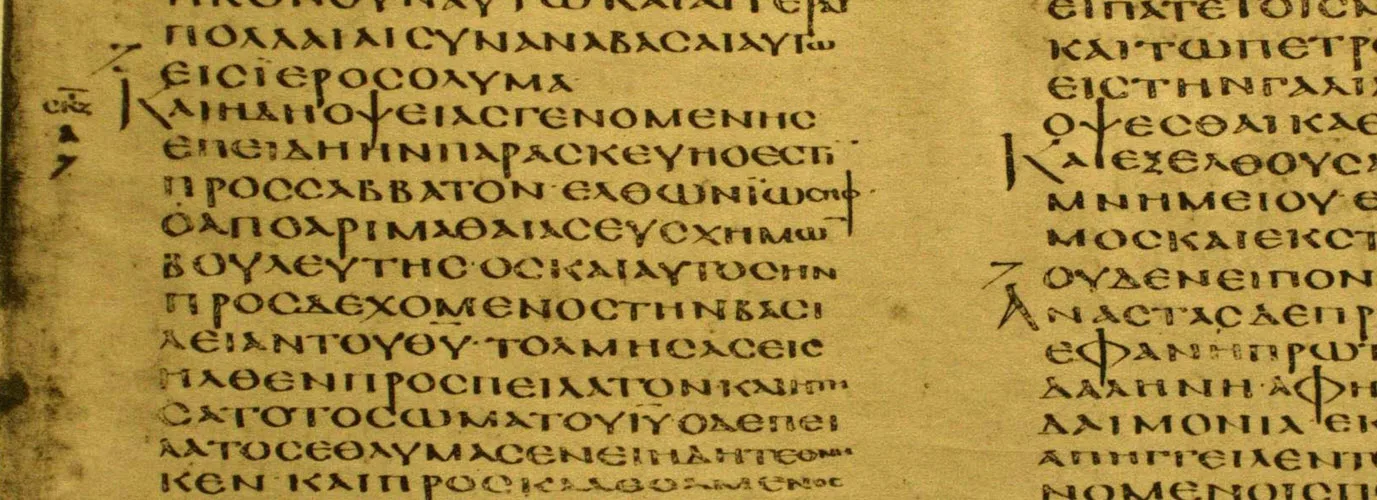 ΠΟΛΛΑΙΑΙϹΥΝΑΝΑΒΑϹΑΙΑΥΤΩ
ΕΙϹΪΕΡΟϹΟΛΥΜΑ
ϹΚΖ
Α
ΚΑΙΗΔΗΟΨΕΙΑϹΓΕΝΟΜΕΝΗϹ
ΕΠΕΙΔΗΗΝΠΑΡΑϹΚΕΥΗΟΕϹΤΙ
ΠΡΟϹϹΑΒΒΑΤΟΝ·ΕΛΘΩΝΪΩϹΗΦ·
ΟΑΠΟΑΡΙΜΑΘΑΙΑϹΕΥϹΧΗΜΩ̅
ΒΟΥΛΕΥΤΗϹ·ΟϹΚΑΙΑΥΤΟϹΗΝ
ΠΡΟϹΔΕΧΟΜΕΝΟϹΤΗΝΒΑϹΙ
ΛΕΙΑΝΤΟΥΘ̅Υ̅·ΤΟΛΜΗϹΑϹΕΙϹ
ΗΛΘΕΝΠΡΟϹΠΕΙΛΑΤΟΝ·ΚΑΙΗΤΗ
ϹΑΤΟΤΟϹΩΜΑΤΟΥΙ̅Υ̅ΟΔΕΠΕΙ
ΛΑΤΟϹΕΘΑΥΜΑϹΕΝΕΙΗΔΗΤΕΘΝΗ
ΚΕΝ·ΚΑΙΠΡΟϹΚΑΛΕϹΑΜΕΝΟϹ
ΕΙΠΑΤΕΤΟΙϹΜ
ΚΑΙΤΩΠΕΤΡ
ΕΙϹΤΗΝΓΑΛΙ
ΟΨΕϹΘΑΙΚΑΘ
ΚΑΙΕΞΕΛΘΟΥϹ
ΜΝΗΜΕΙΟΥ·Ε
ΜΟϹΚΑΙΕΚϹΤ
ΟΥΔΕΝΕΙΠΟΝ
ΑΝΑϹΤΑϹΔΕΠΡ
ΕΦΑΝΗΠΡΩΤ
ΔΑΛΗΝΗ·ΑΦΗ
ΔΑΙΜΟΝΙΑΕΚ
ΑΠΗΓΓΕΙΛΕΝΤ
ΝΟΜΕΝΟΙϹΠ